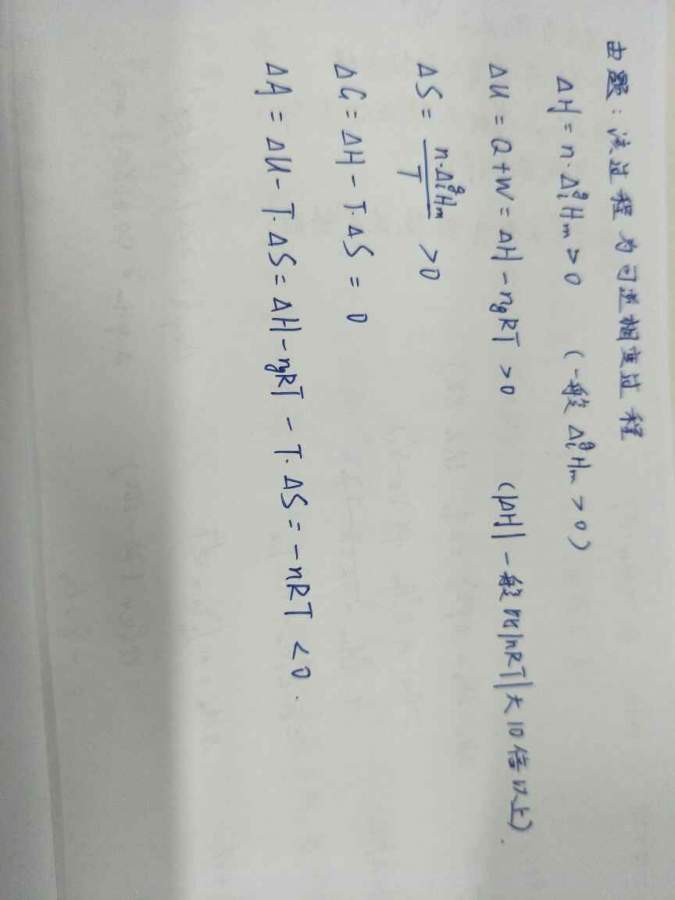 由题：该过程为可逆相变过程
ΔH = n·Δ_l^g H_m > 0 (一般 Δ_l^g H_m > 0)
ΔU = Q + W = ΔH - n_g RT > 0 (|ΔH| 一般比|nRT|大10倍以上)
ΔS = n·Δ_l^g H_m / T > 0
ΔG = ΔH - T·ΔS = 0
ΔA = ΔU - T·ΔS = ΔH - n_g RT - T·ΔS = -nRT < 0.